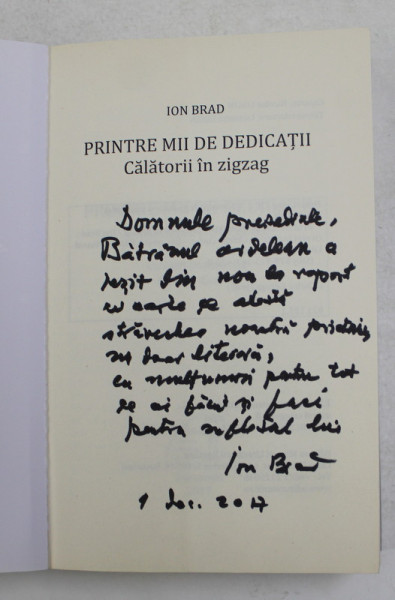 ION BRAD
PRINTRE MII DE DEDICAȚII
Călătorii în zigzag
Domnule președinte,
Bătrânul ardelean a
ieșit din nou la raport
cu carte pe
străvechea noastră prietenie,
nu doar literară,
cu mulțumiri pentru tot
ce ai făcut și faci
pentru sufletul lui
Ion Brad
1 dec. 2017